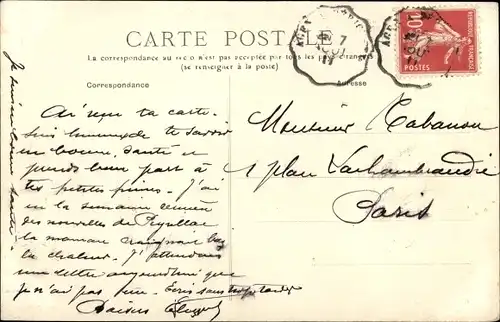 CARTE POSTALE
La correspondance au verso n'est pas acceptée par tous les pays étrangers
(se renseigner à la poste)
Correspondance
Adresse
RÉPUBLIQUE FRANÇAISE
10
POSTES
7
Ai reçu ta carte
suis heureux de te savoir
en bonne santé et
prends bien part à
tes petites peines. J'ai
eu la semaine dernière
des nouvelles de
la maman craignait
la chaleur. J'attendais
une lettre aujourd'hui que
je n'ai pas eue. Écris sans trop tarder
Baisers
Je suis en bonne santé
Monsieur Cabanon
1 place Lachambeaudie
Paris